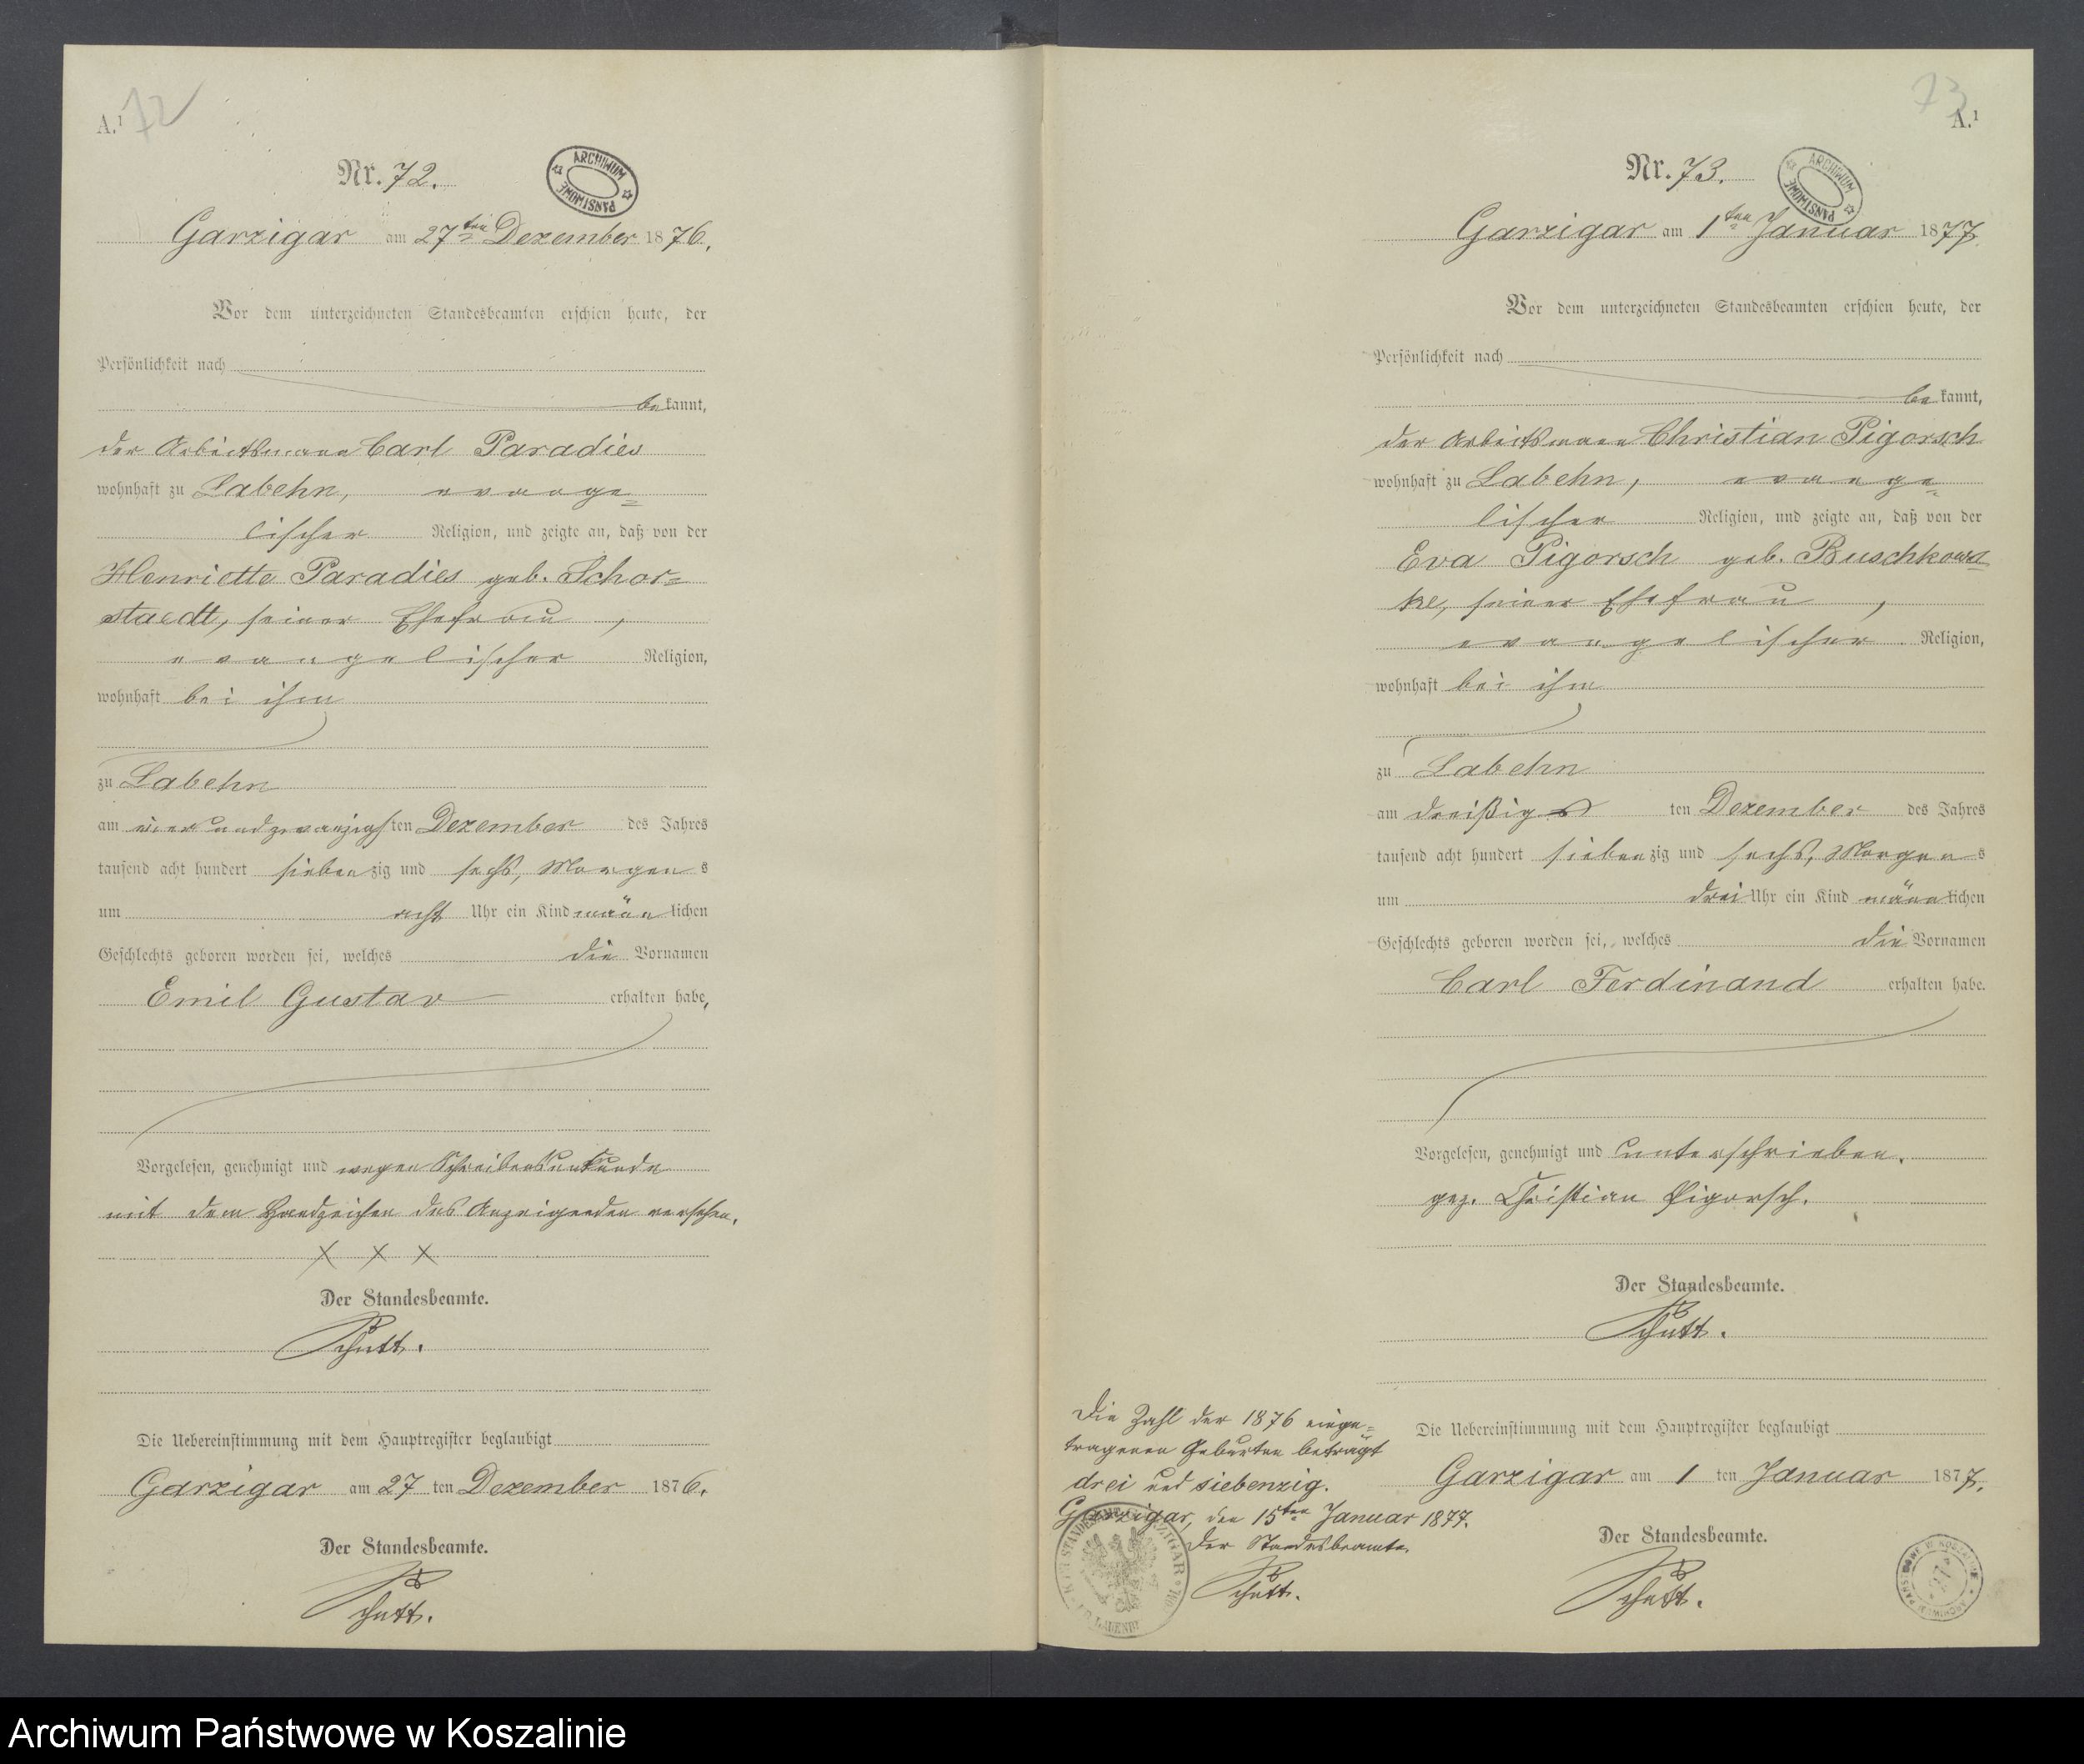 A.¹ 72
Nr. 72.
ARCHIWUM PAŃSTWOWE
Garzigar am 27ten Dezember 1876.
Vor dem unterzeichneten Standesbeamten erschien heute, der
Persönlichkeit nach
bekannt,
der Arbeitsmann Carl Paradies
wohnhaft zu Labehn, evange=
lischer Religion, und zeigte an, daß von der
Henriette Paradies geb. Schor=
staedt, seiner Ehefrau,
evangelischer Religion,
wohnhaft bei ihm
zu Labehn
am vierundzwanzigsten Dezember des Jahres
tausend acht hundert siebenzig und sechs, Morgens
um acht Uhr ein Kind männlichen
Geschlechts geboren worden sei, welches die Vornamen
Emil Gustav erhalten habe,
Vorgelesen, genehmigt und wegen Schreibensunkunde
mit dem Handzeichen des Anzeigenden versehen.
X X X
Der Standesbeamte.
Schutt.
Die Uebereinstimmung mit dem Hauptregister beglaubigt
Garzigar am 27 ten Dezember 1876.
Der Standesbeamte.
Schutt.
73
A.¹
Nr. 73.
ARCHIWUM PAŃSTWOWE
Garzigar am 1ten Januar 1877.
Vor dem unterzeichneten Standesbeamten erschien heute, der
Persönlichkeit nach
bekannt,
der Arbeitsmann Christian Pigorsch
wohnhaft zu Labehn, evange=
lischer Religion, und zeigte an, daß von der
Eva Pigorsch geb. Buschkows=
ke, seiner Ehefrau,
evangelischer Religion,
wohnhaft bei ihm
zu Labehn
am dreißigsten Dezember des Jahres
tausend acht hundert siebenzig und sechs, Morgens
um drei Uhr ein Kind männlichen
Geschlechts geboren worden sei, welches die Vornamen
Carl Ferdinand erhalten habe.
Vorgelesen, genehmigt und unterschrieben.
gez. Christian Pigorsch.
Der Standesbeamte.
Schutt.
Die Uebereinstimmung mit dem Hauptregister beglaubigt
Garzigar am 1 ten Januar 1877.
Der Standesbeamte.
Schutt.
Die Zahl der 1876 einge=
tragenen Geburten beträgt
drei und siebenzig.
Garzigar, den 15ten Januar 1877.
Der Standesbeamte.
Schutt.
Archiwum Państwowe w Koszalinie